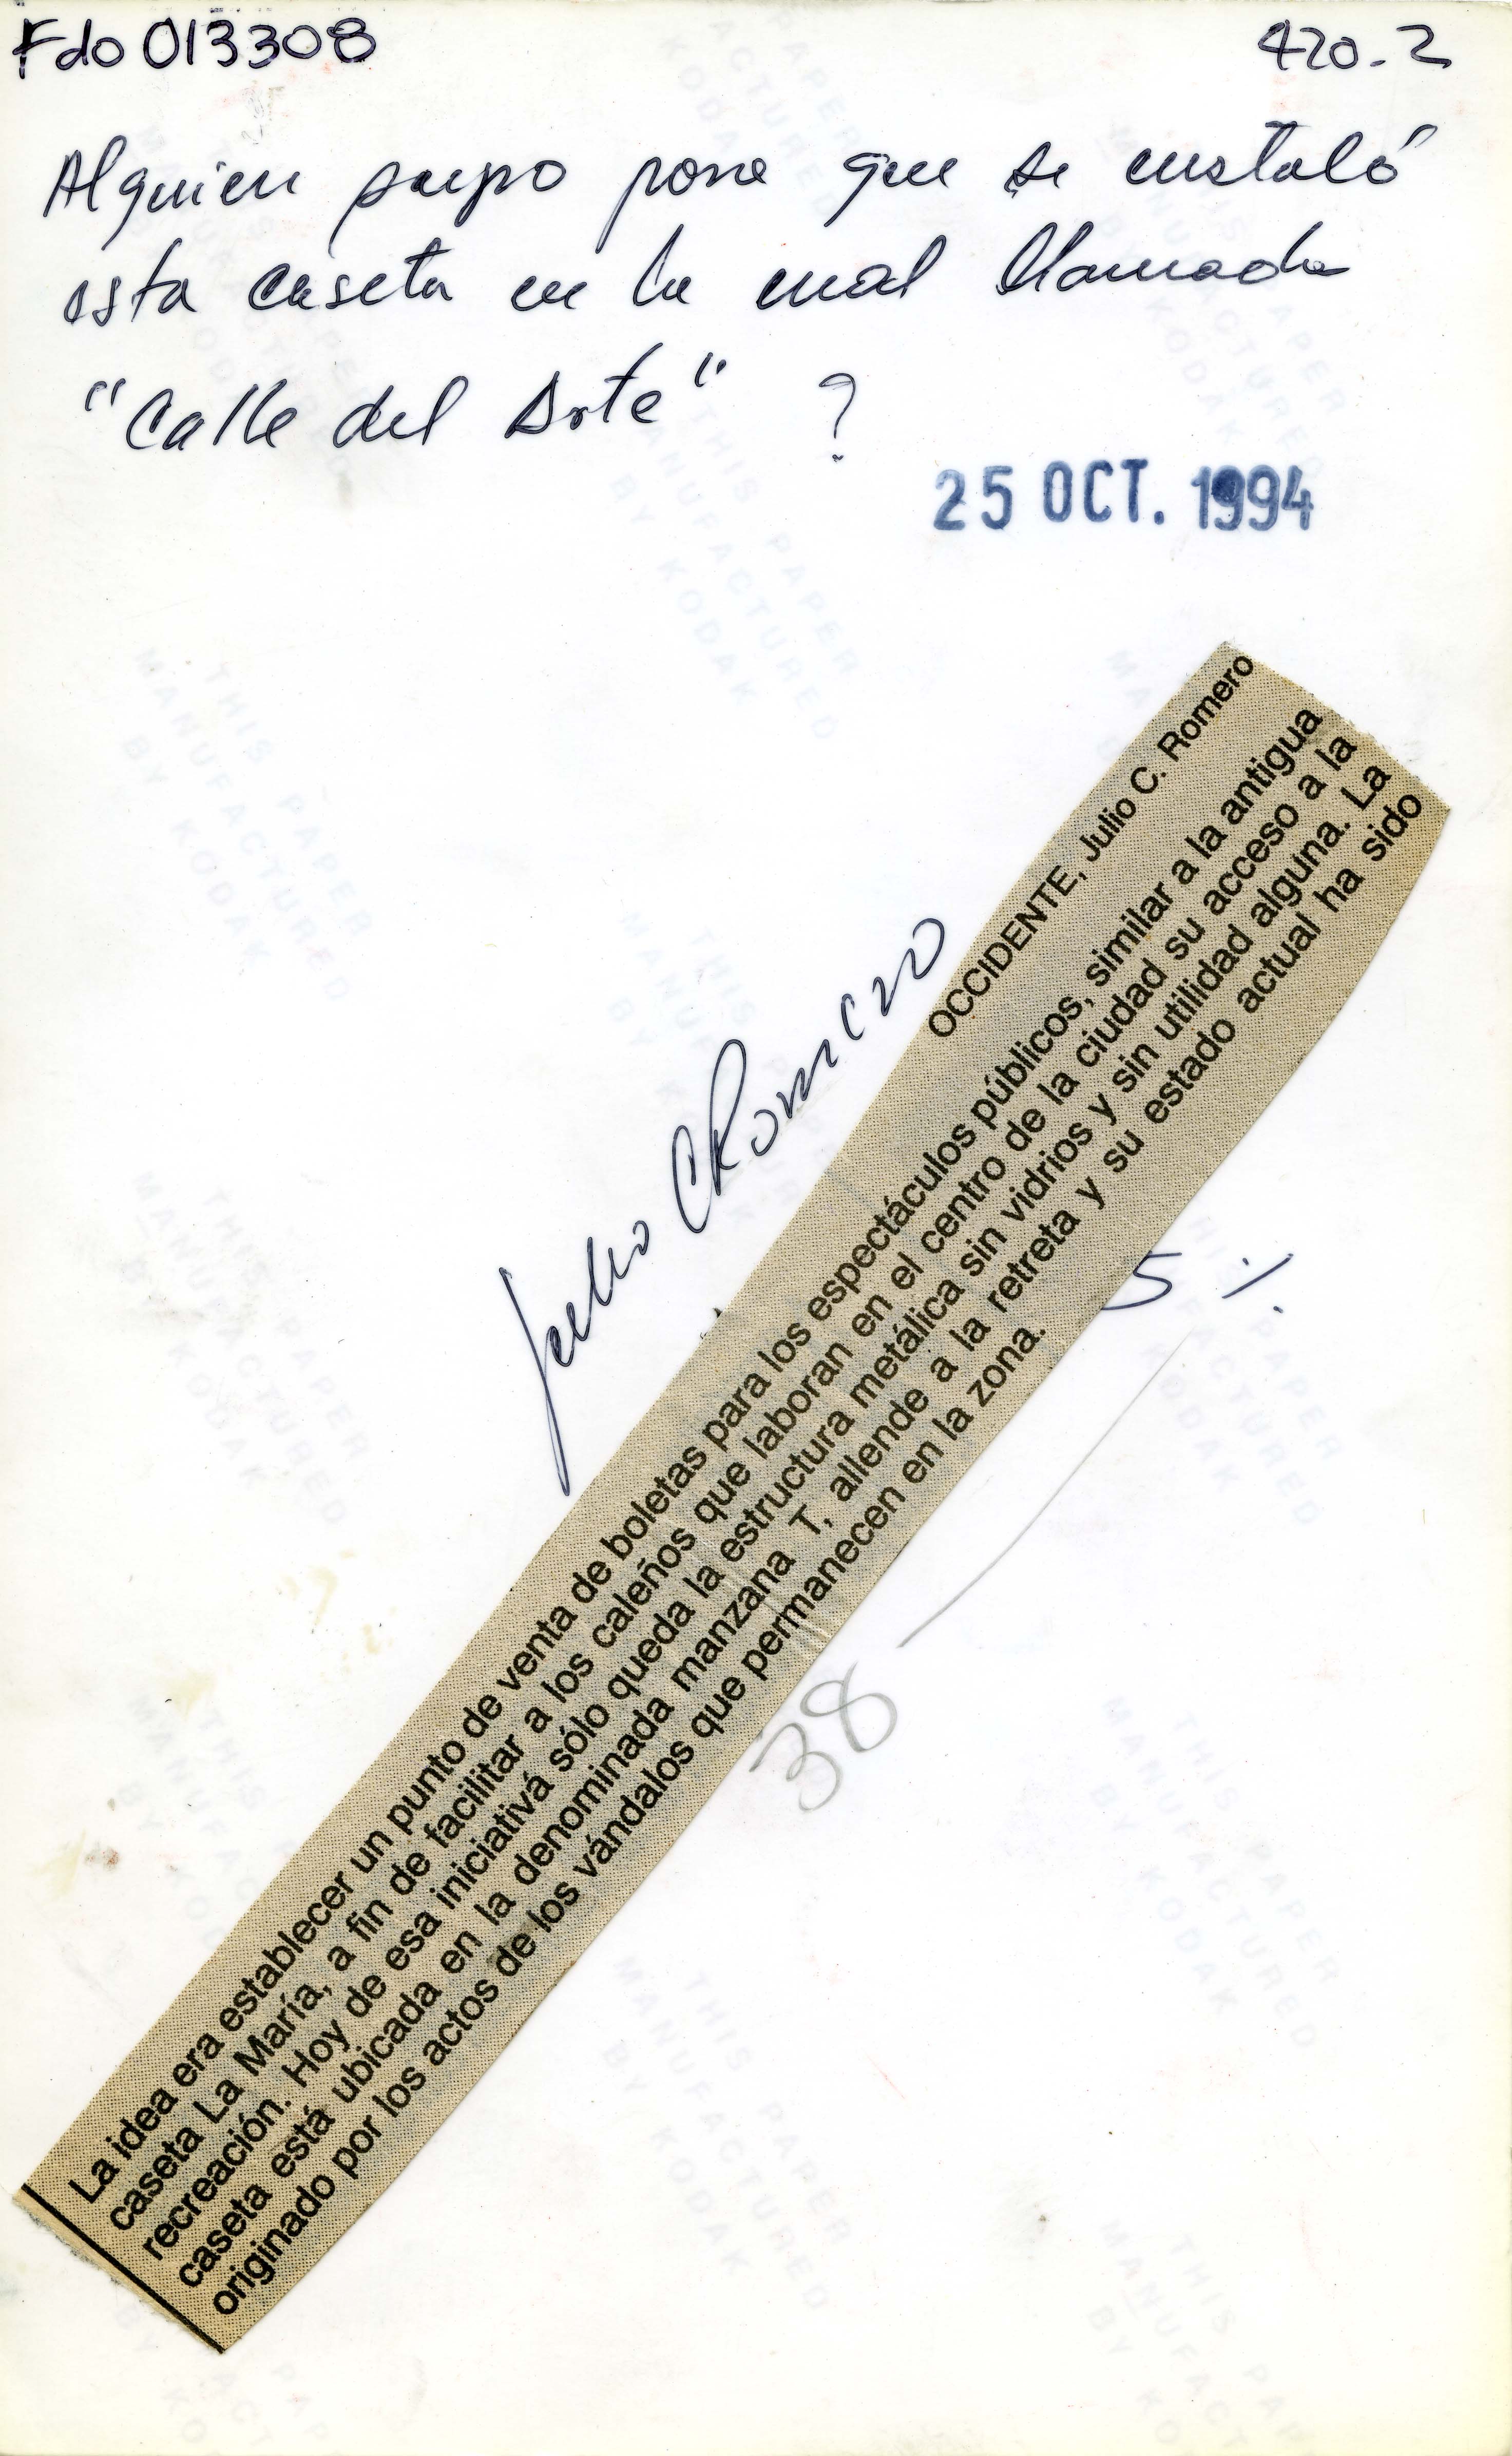 Fdo 013308
420.2
Alguien supo para que se instaló
esta caseta en la mal llamada
"Calle del Arte" ?
25 OCT. 1994
Julio C Romero
OCCIDENTE, Julio C. Romero
La idea era establecer un punto de venta de boletas para los espectáculos públicos, similar a la antigua
caseta La María, a fin de facilitar a los caleños que laboran en el centro de la ciudad su acceso a la
recreación. Hoy de esa iniciativa sólo queda la estructura metálica sin vidrios y sin utilidad alguna. La
caseta está ubicada en la denominada manzana T, allende a la retreta y su estado actual ha sido
originado por los actos de los vándalos que permanecen en la zona.
38
THIS PAPER
MANUFACTURED
BY KODAK